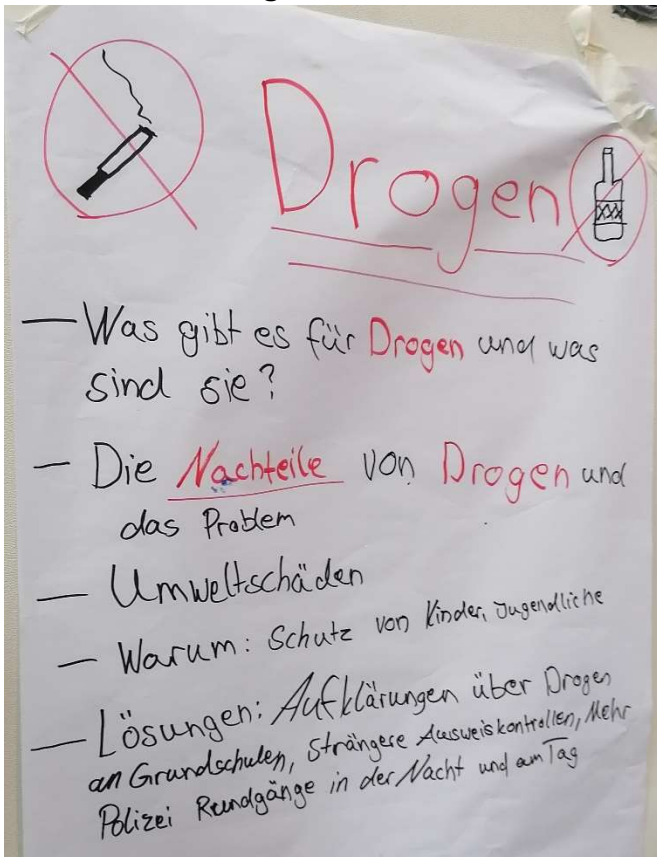 Drogen
— Was gibt es für Drogen und was
sind sie?
— Die Nachteile von Drogen und
das Problem
— Umweltschäden
— Warum: Schutz von Kinder, Jugendliche
— Lösungen: Aufklärungen über Drogen
an Grundschulen, Strängere Ausweiskontrollen, Mehr
Polizei Rundgänge in der Nacht und am Tag